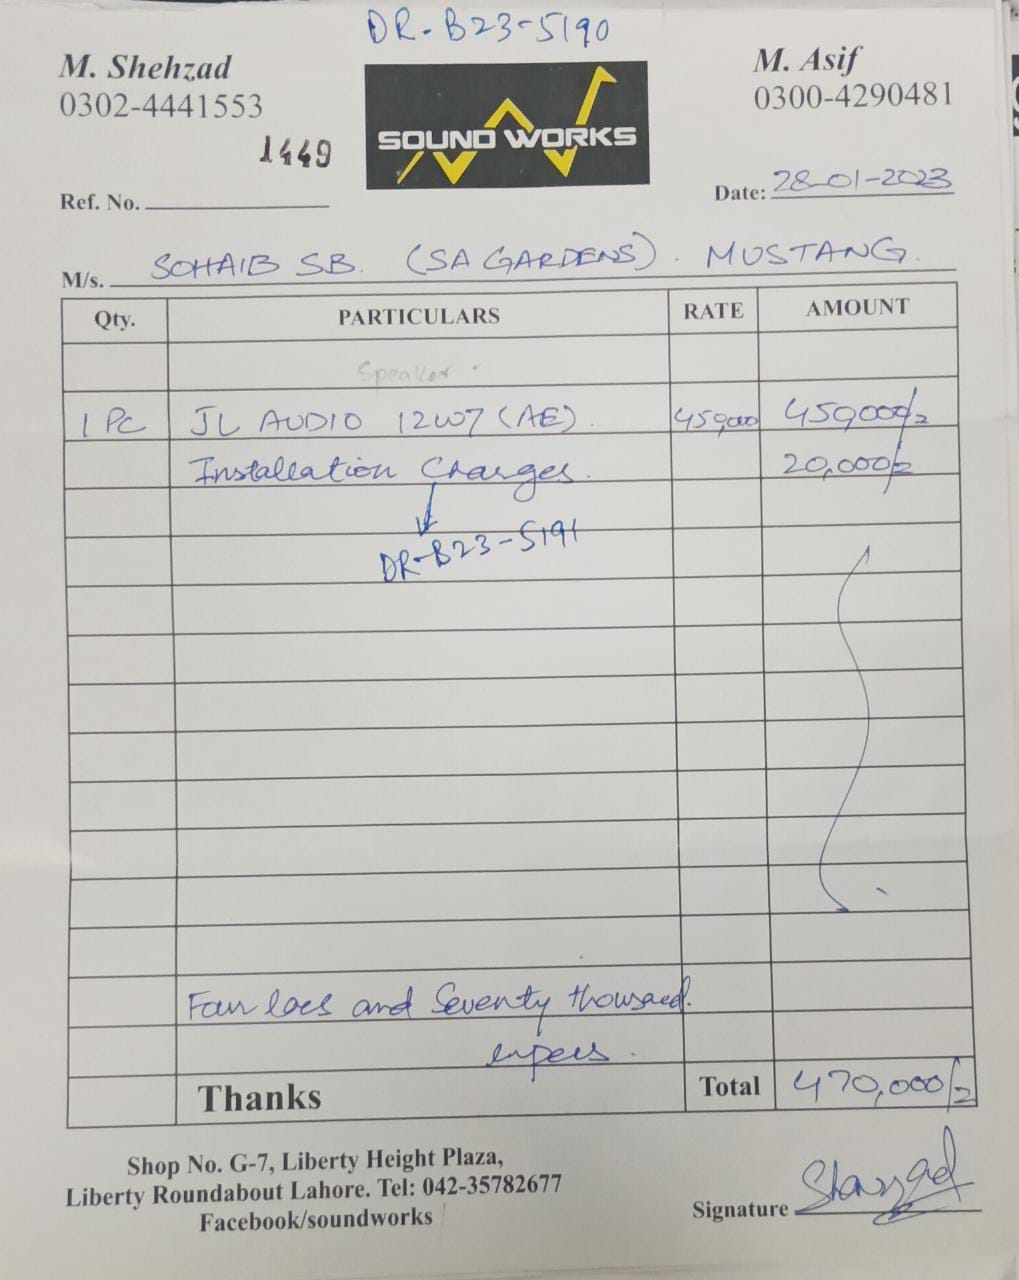 DR-B23-5190
M. Shehzad
0302-4441553
SOUND WORKS
M. Asif
0300-4290481
1449
Ref. No.
Date: 28-01-2023
M/s. SOHAIB SB. (SA GARDENS). MUSTANG.
Qty. PARTICULARS RATE AMOUNT
Speaker
1 PC JL AUDIO 12W7 (AE). 450,000 450,000/=
Installation Charges. 20,000/=
DR-B23-5191
Four lacs and Seventy thousand.
rupees.
Thanks Total 470,000/=
Shop No. G-7, Liberty Height Plaza,
Liberty Roundabout Lahore. Tel: 042-35782677
Facebook/soundworks
Signature